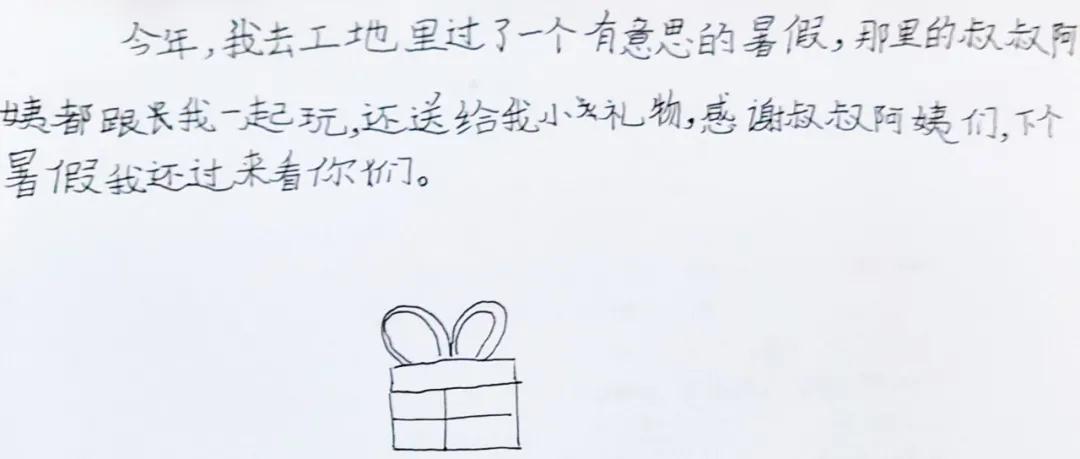 今年,我去工地里过了一个有意思的暑假,那里的叔叔阿
姨都跟我一起玩,还送给我小礼物,感谢叔叔阿姨们,下个
暑假我还过来看你们。